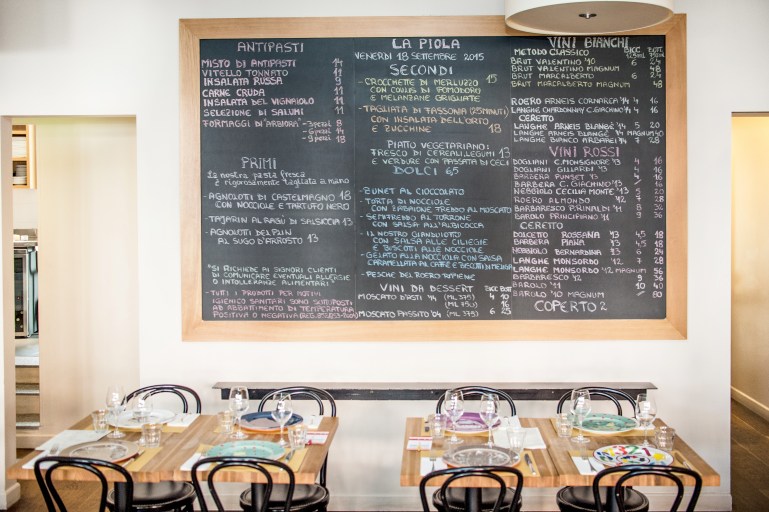 ANTIPASTI
MISTO DI ANTIPASTI 14
VITELLO TONNATO 11
INSALATA RUSSA 9
CARNE CRUDA 11
INSALATA DEL VIGNAIOLO 9
SELEZIONE DI SALUMI 11
FORMAGGI DI "ARBIORA" -3 pezzi 8
-6 pezzi 14
-9 pezzi 18
PRIMI
La nostra pasta fresca
è rigorosamente tagliata a mano
-AGNOLOTTI DI CASTELMAGNO 18
CON NOCCIOLE E TARTUFO NERO
-TAJARIN AL RAGÙ DI SALSICCIA 13
-AGNOLOTTI DEL PLIN
AL SUGO D'ARROSTO 13
"SI RICHIEDE AI SIGNORI CLIENTI
DI COMUNICARE EVENTUALI ALLERGIE
O INTOLLERANZE ALIMENTARI"
-TUTTI I PRODOTTI PER MOTIVI
IGIENICO SANITARI SONO SOTTOPOSTI
AD ABBATTIMENTO DI TEMPERATURA
POSITIVA O NEGATIVA
LA PIOLA
VENERDÌ 18 SETTEMBRE 2015
SECONDI
-CROCCHETTE DI MERLUZZO 15
CON COULIS DI POMODORO
E MELANZANE GRIGLIATE
-TAGLIATA DI FASSONA (25 MINUTI)
CON INSALATA DELL'ORTO
E ZUCCHINE 18
PIATTO VEGETARIANO:
FRESCO DI CEREALI, LEGUMI 13
E VERDURE CON PASSATA DI CECI
DOLCI 6,5
-BUNET AL CIOCCOLATO
-TORTA DI NOCCIOLE
CON ZABAIONE FREDDO AL MOSCATO
-SEMIFREDDO AL TORRONE
CON SALSA ALL'ALBICOCCA
-IL NOSTRO GIANDUIOTTO
CON SALSA ALLE CILIEGIE
E BISCOTTI ALLE NOCCIOLE
-GELATO ALLA NOCCIOLA CON SALSA
CARAMELLATA AL CAFFÈ E BISCOTTI
-PESCHE DEL ROERO RIPIENE
VINI DA DESSERT BICC BOTT
MOSCATO D'ASTI '14 (ML 375) 4 10
(ML 750) 16
MOSCATO PASSITO '04 (ML 375) 6 25
VINI BIANCHI BICC BOTT
METODO CLASSICO 125ml 750ml
BRUT VALENTINO '10 6 24
BRUT VALENTINO MAGNUM 48
BRUT MARCALBERTO 6 24
BRUT MARCALBERTO MAGNUM 48
ROERO ARNEIS CORNAREA '14 4 16
LANGHE CHARDONNAY C.GIACHINO 4 16
CERETTO
LANGHE ARNEIS BLANGÈ '14 5 20
LANGHE ARNEIS BLANGÈ '14 MAGNUM 40
LANGHE BIANCO ARBAREI '14 7 28
VINI ROSSI
DOGLIANI C.MONSIGNORE '13 4 16
DOGLIANI GILLARDI '13 4 16
BARBERA PUNSET '13 4 16
BARBERA C.GIACHINO '13 4 16
NEBBIOLO CECILIA MONTE '13 5 20
ROERO ALMONDO '12 7 28
BARBARESCO P.RINALDI '11 8 36
BAROLO PRINCIPIANO '11 9 36
CERETTO
DOLCETTO ROSSANA '13 4,5 18
BARBERA PIANA '13 4,5 18
NEBBIOLO BERNARDINA '13 6 24
LANGHE MONSORDO '12 7 28
LANGHE MONSORDO '12 MAGNUM 56
BARBARESCO '12 9 36
BAROLO '11 10 40
BAROLO '10 MAGNUM / 80
COPERTO 2